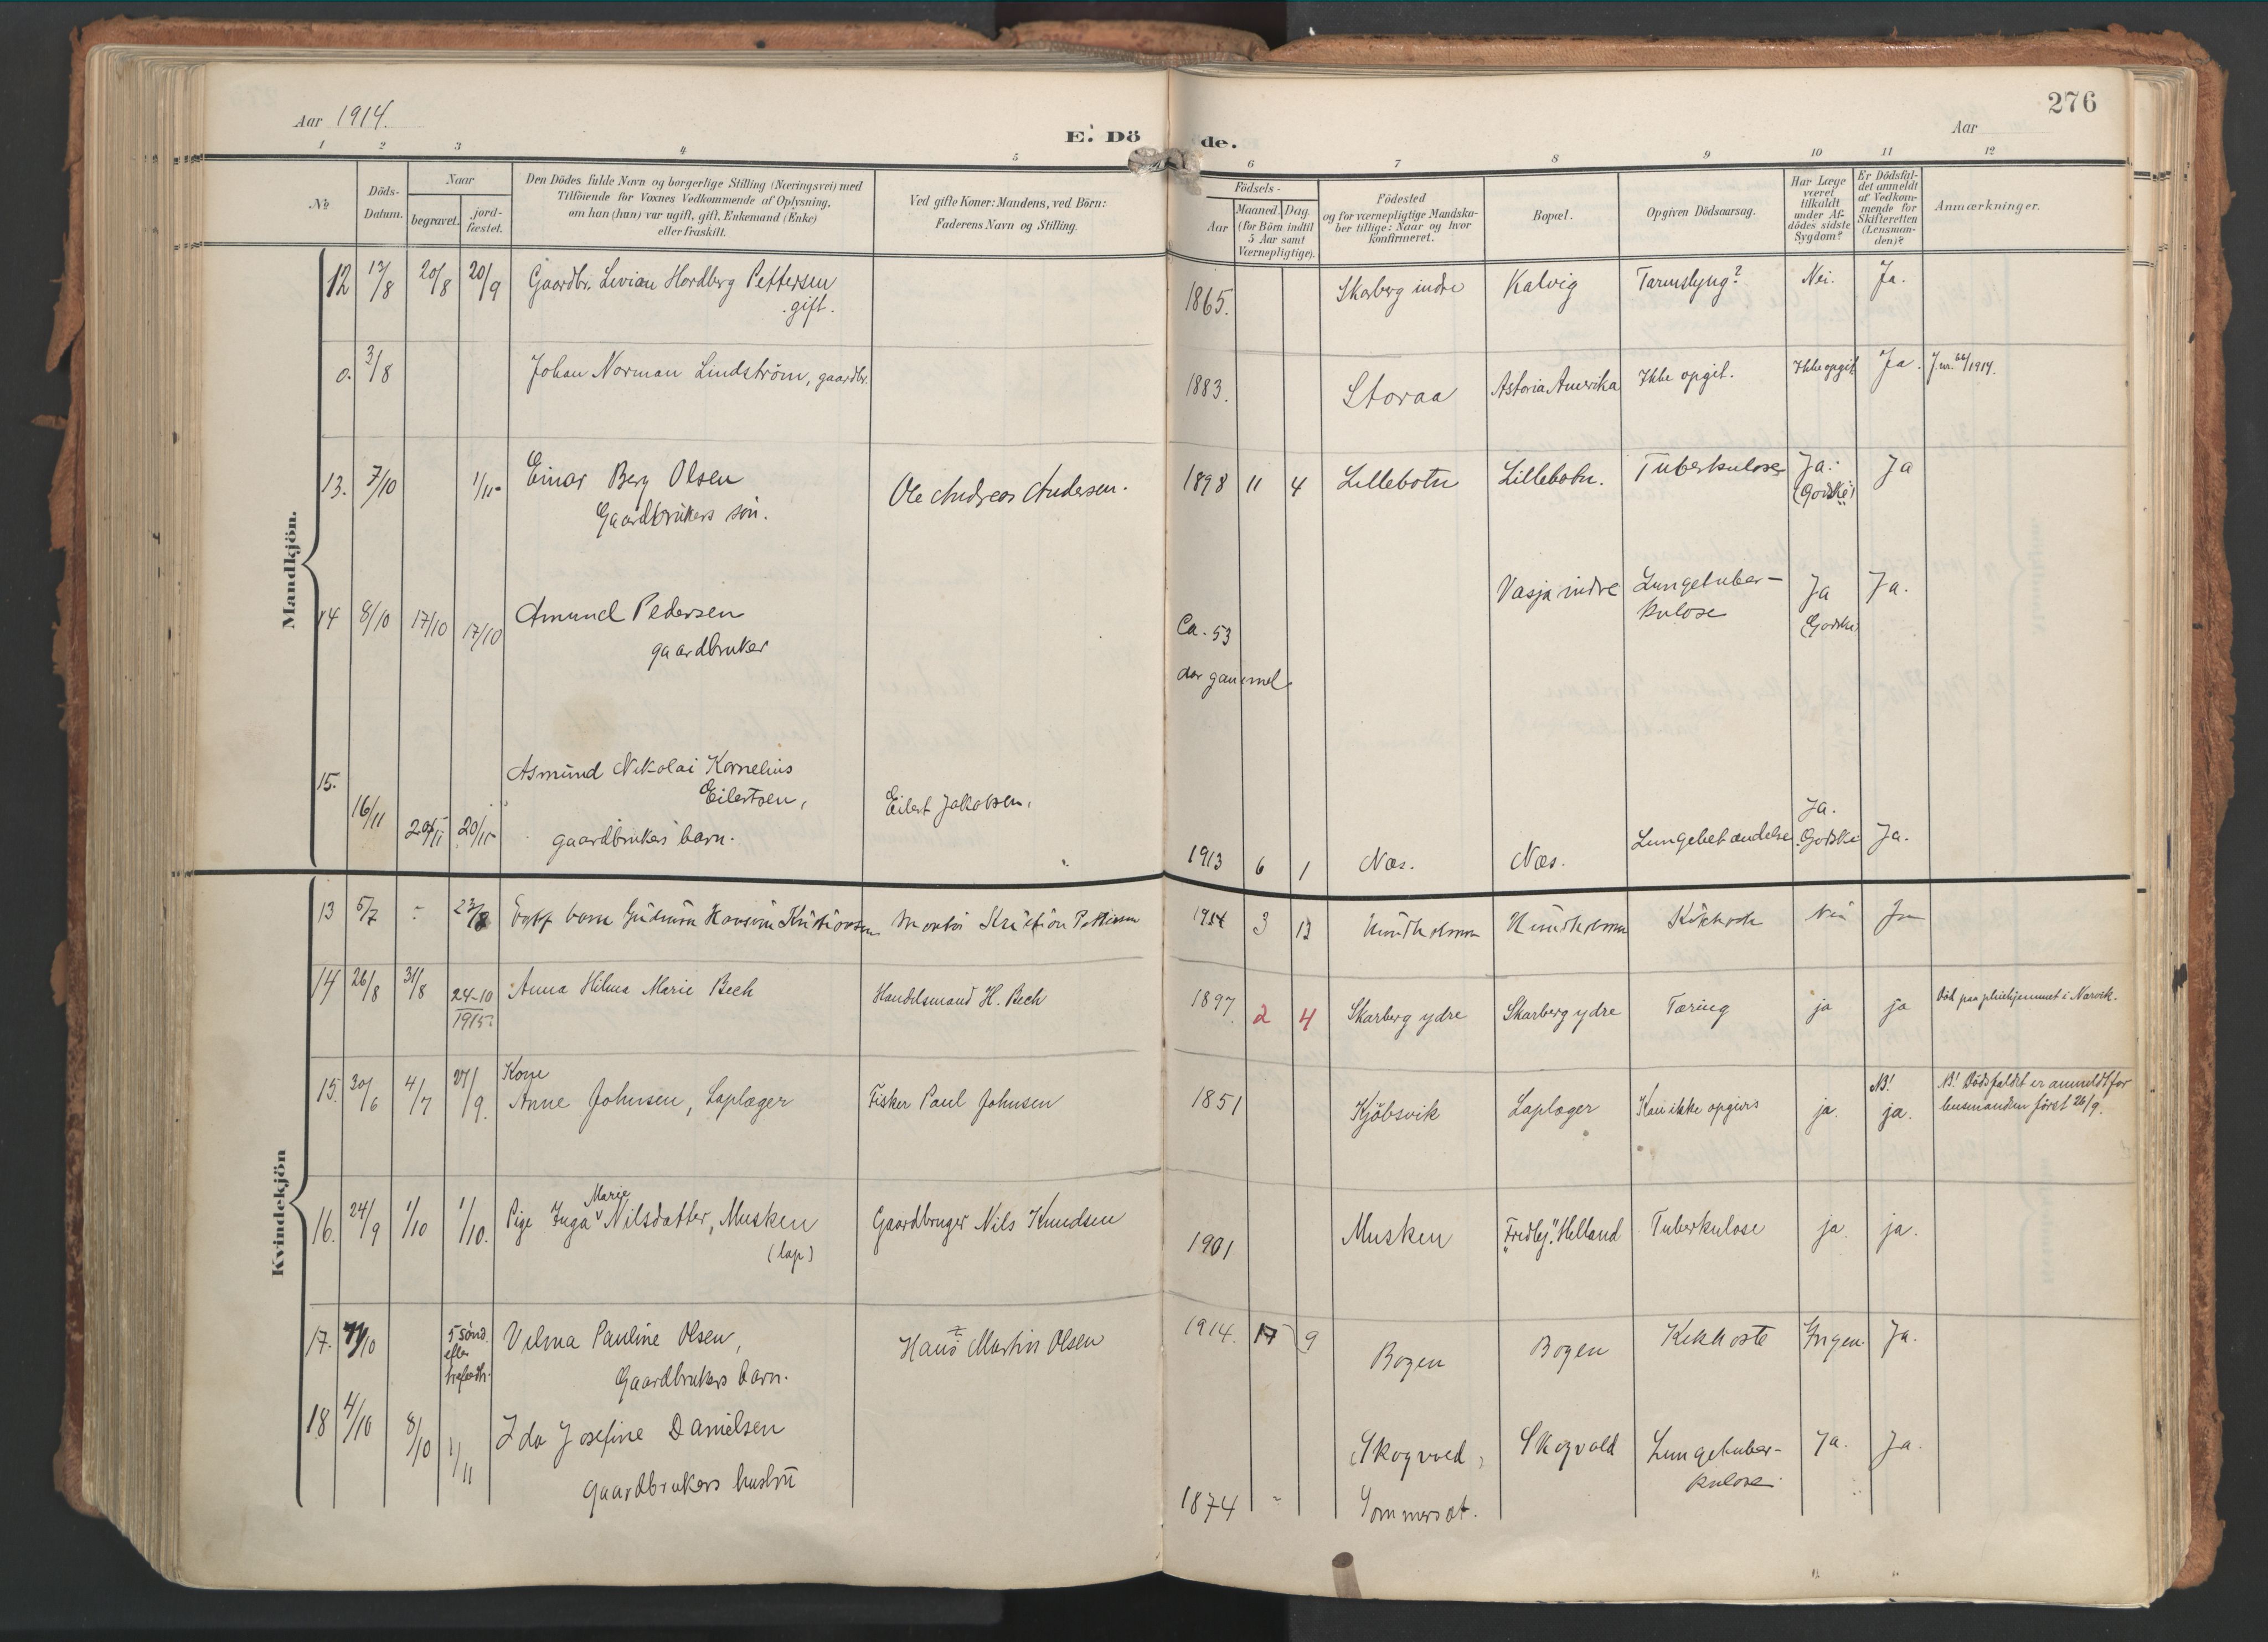 Aar 1914.
E. Dö de.
Aar
276
1 2 3 4 5 6 7 8 9 10 11 12
No
Döds-
Datum.
Naar
begravet.
jord-
fæstet.
Den Dödes fulde Navn og borgerlige Stilling (Næringsvei) med
Tilföiende for Voxnes Vedkommende af Oplysning,
om han (hun) var ugift, gift, Enkemand (Enke)
eller fraskilt.
Ved gifte Koner: Mandens, ved Börn:
Faderens Navn og Stilling.
Födsels-
Aar
Maaned. Dag.
(for Börn indtil
5 Aar samt
Værnepligtige).
Födested
og for værnepligtige Mandska-
ber tillige: Naar og hvor
konfirmeret.
Bopæl.
Opgiven Dödsaarsag.
Har Læge
været
tilkaldt
under Af-
dödes sidste
Sygdom?
Er Dödsfal-
det anmeldt
af Vedkom-
mende for
Skifteretten
(Lensman-
den)?
Anmærkninger.
Mandkjön.
12 13/8 20/8 20/9 Gaardbr. Levian Hordberg Pettersen 1865. Skarberg indre Kalvig Tarmslyng? Nei. Ja.
gift.
0. 3/8 Johan Norman Lindström, gaardbr. 1883. Storaa Astoria Amerika Ikke opgit. Ikke opgit Ja. J.nr. /1914.
13. 7/10 1/11 Einar Berg Olsen Ole Andreas Andersen. 1898 11 4 Lillebotn Lillebotn. Tuberkulose Ja. Ja
Gaardbrukers sön. (Godske)
14 8/10 17/10 17/10 Amund Pedersen Ca. 53 Vasja indre Lungetuber- Ja Ja.
gaardbruker aar gammel kulose (Godske)
15. Asmund Nikolai Kornelius
Eilertsen, Eilert Jakobsen, Ja.
16/11 20/11 gaardbrukers barn. 1913 6 1 Næs. Næs. Lungebetændelse Godske Ja.
Kvindekjön
13 5/7 - 23/8 barn Kristian 1914 3 13 Nei Ja
14 26/8 31/8 24-10 Anna Hilma Marie Bech Handelsmand H. Bech 1897. 2 4 Skarberg ydre Skarberg ydre Tæring ja ja Död paa pleiehjemmet i Narvik.
1915.
15. 30/6 4/7 27/9. Kone
Anne Johnsen, Laplæger Fisker Paul Johnsen 1851 Kjöbsvik Laplæger Kan ikke opgives ja. NB! ja. NB! Dödsfaldet er anmeldt for
lensmanden först 26/9.
16. 24/9 1/10 1/10. Pige Inga Marie Nilsdatter, Musken Gaardbruger Nils Knudsen 1901 Musken "Fredly", Helland Tuberkulose ja. ja.
(lap)
17. /10 5 sönd. Vilma Pauline Olsen, Hans Martin Olsen 1914. 9 Bogen Bogen Kikhoste Ingen Ja.
efter
Gaardbrukers barn.
18 4/10 8/10 1/11 Ida Josefine Danielsen (Skogvold) Skogvold Lungetuber- Ja. Ja.
gaardbrukers hustru 1874 - Sommerset. kulose.